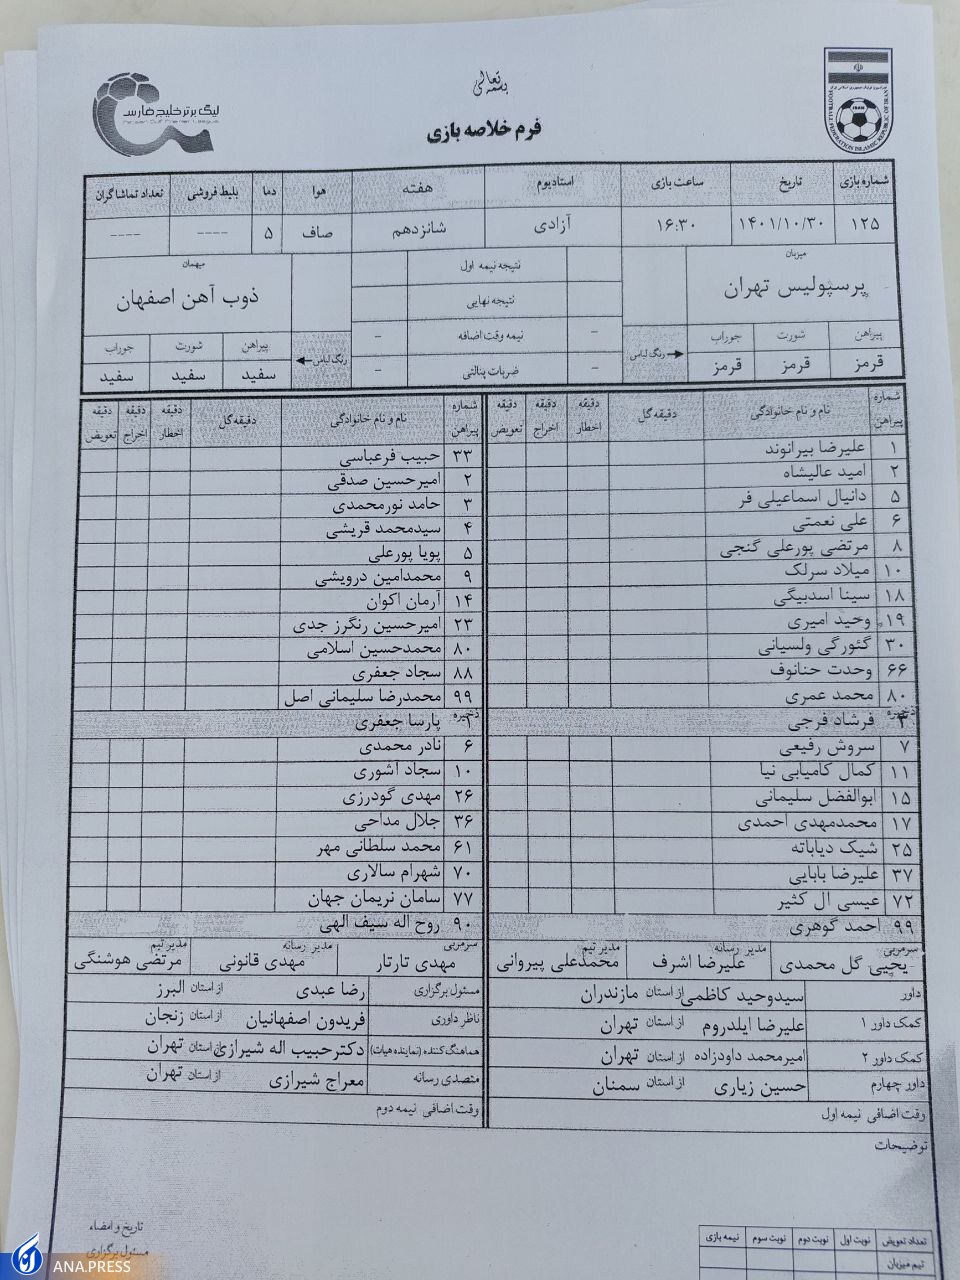 بسمه تعالی
فرم خلاصه بازی
لیگ برتر خلیج فارس
Persian Gulf Premier League
FOOTBALL FEDERATION ISLAMIC REPUBLIC OF IRAN
IRAN
شماره بازی تاریخ ساعت بازی استادیوم هفته هوا دما بلیط فروشی تعداد تماشاگران
۱۲۵ ۱۴۰۱/۱۰/۳۰ ۱۶:۳۰ آزادی شانزدهم صاف ۵ ---- ----
میزبان نتیجه نیمه اول میهمان
پرسپولیس تهران نتیجه نهایی ذوب آهن اصفهان
پیراهن شورت جوراب رنگ لباس - نیمه وقت اضافه - رنگ لباس پیراهن شورت جوراب
قرمز قرمز قرمز - ضربات پنالتی - سفید سفید سفید
شماره پیراهن نام و نام خانوادگی دقیقه گل دقیقه اخطار دقیقه اخراج دقیقه تعویض شماره پیراهن نام و نام خانوادگی دقیقه گل دقیقه اخطار دقیقه اخراج دقیقه تعویض
۱ علیرضا بیرانوند ۳۳ حبیب فرعباسی
۲ امید عالیشاه ۲ امیرحسین صدقی
۵ دانیال اسماعیلی فر ۳ حامد نورمحمدی
۶ علی نعمتی ۴ سیدمحمد قریشی
۸ مرتضی پورعلی گنجی ۵ پویا پورعلی
۱۰ میلاد سرلک ۹ محمدامین درویشی
۱۸ سینا اسدبیگی ۱۴ آرمان اکوان
۱۹ وحید امیری ۲۳ امیرحسین رنگرز جدی
۳۰ گئورگی ولسیانی ۸۰ محمدحسین اسلامی
۶۶ وحدت حنانوف ۸۸ سجاد جعفری
۸۰ محمد عمری ۹۹ محمدرضا سلیمانی اصل
ذخیره فرشاد فرجی ذخیره پارسا جعفری
۷ سروش رفیعی ۶ نادر محمدی
۱۱ کمال کامیابی نیا ۱۰ سجاد آشوری
۱۵ ابوالفضل سلیمانی ۲۶ مهدی گودرزی
۱۷ محمدمهدی احمدی ۳۶ جلال مداحی
۲۵ شیک دیاباته ۶۱ محمد سلطانی مهر
۳۷ علیرضا بابایی ۷۰ شهرام سالاری
۷۲ عیسی آل کثیر ۷۷ سامان نریمان جهان
۹۹ احمد گوهری ۹۰ روح اله سیف الهی
سرمربی مدیر رسانه مدیر تیم سرمربی مدیر رسانه مدیر تیم
یحیی گل محمدی علیرضا اشرف محمدعلی پیروانی مهدی تارتار مهدی قانونی مرتضی هوشنگی
داور سیدوحید کاظمی از استان مازندران مسئول برگزاری رضا عبدی از استان البرز
کمک داور ۱ علیرضا ایلدروم از استان تهران ناظر داوری فریدون اصفهانیان از استان زنجان
کمک داور ۲ امیرمحمد داودزاده از استان تهران هماهنگ کننده (نماینده هیات) دکترحبیب اله شیرازی از استان تهران
داور چهارم حسین زیاری از استان سمنان متصدی رسانه معراج شیرازی از استان تهران
وقت اضافی نیمه اول وقت اضافی نیمه دوم
توضیحات
تاریخ و امضاء
مسئول برگزاری
تعداد تعویض نوبت اول نوبت دوم نوبت سوم نیمه بازی
تیم میزبان
آنا
ANA.PRESS